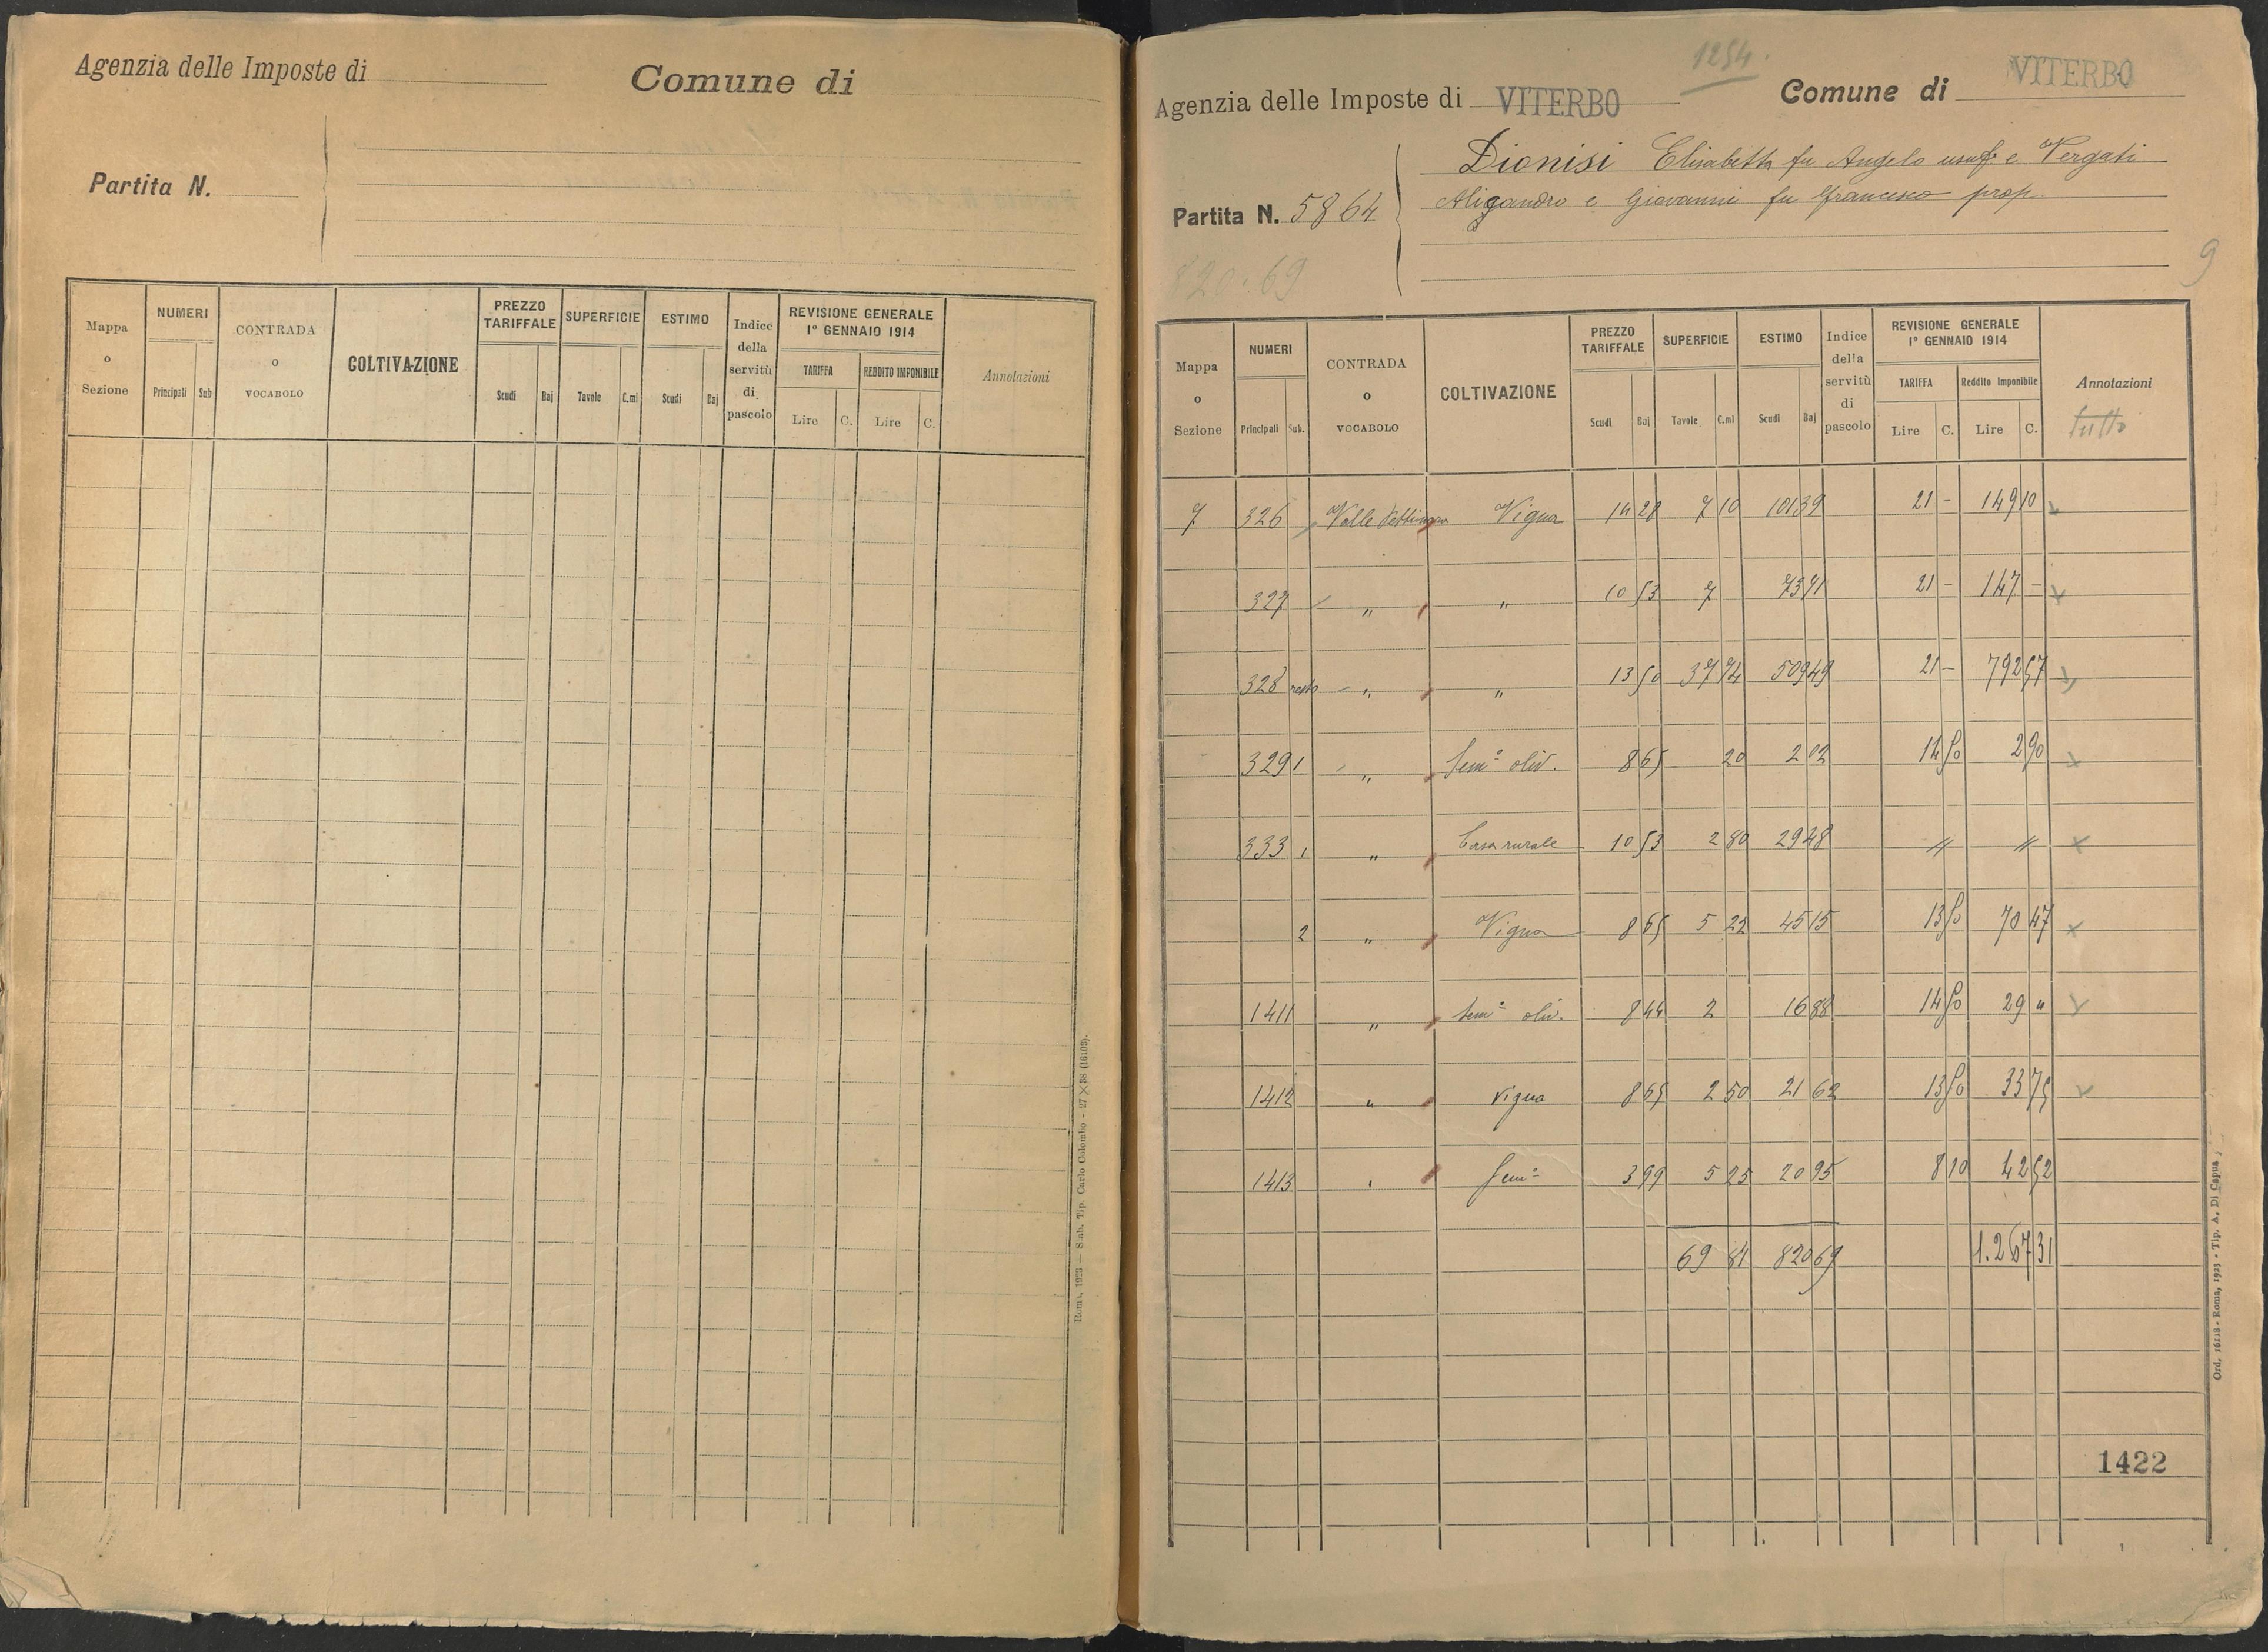 Agenzia delle Imposte di
Comune di
Partita N.
Mappa o Sezione | NUMERI | CONTRADA o VOCABOLO | COLTIVAZIONE | PREZZO TARIFFALE | SUPERFICIE | ESTIMO | Indice della servitù di pascolo | REVISIONE GENERALE 1° GENNAIO 1914 | Annotazioni
Principali | Sub | Scudi | Baj | Tavole | C.mi | Scudi | Baj | TARIFFA | REDDITO IMPONIBILE
Lire | C. | Lire | C.
Roma, 1923 — Stab. Tip. Carlo Colombo - 27 X 38 (16103).
1254.
Agenzia delle Imposte di VITERBO
Comune di VITERBO
Partita N. 5864
Dionisi Elisabetta fu Angelo usuf: e Vergati
Aligandro e Giovanni fu Francesco prop.
820.69
9
Mappa o Sezione | NUMERI | CONTRADA o VOCABOLO | COLTIVAZIONE | PREZZO TARIFFALE | SUPERFICIE | ESTIMO | Indice della servitù di pascolo | REVISIONE GENERALE 1° GENNAIO 1914 | Annotazioni
Principali | Sub. | Scudi | Baj | Tavole | C.mi | Scudi | Baj | TARIFFA | Reddito Imponibile | tutto
Lire | C. | Lire | C.
7 | 326 | Valle | Vigna | 14 28 | 7 10 | 101 39 | 21 - | 149 10
327 | " | " | 10 53 | 7 | 73 71 | 21 - | 147 -
328 resto | " | " | 13 50 | 37 74 | 509 49 | 21 - | 792 57
329 1 | " | Sem° oliv. | 8 65 | 20 | 2 02 | 14 50 | 2 90
333 1 | " | Casa rurale | 10 53 | 2 80 | 29 48 | " | "
2 | " | Vigna | 8 65 | 5 22 | 45 15 | 13 50 | 70 47
1411 | " | Sem° oliv. | 8 44 | 2 | 16 88 | 14 50 | 29 "
1412 | " | Vigna | 8 65 | 2 50 | 21 62 | 13 50 | 33 75
1413 | " | Sem° | 3 99 | 5 25 | 20 95 | 8 10 | 42 52
69 81 | 820 69 | 1.267 31
1422
Ord. 16118 - Roma, 1923 - Tip. A. Di Capua